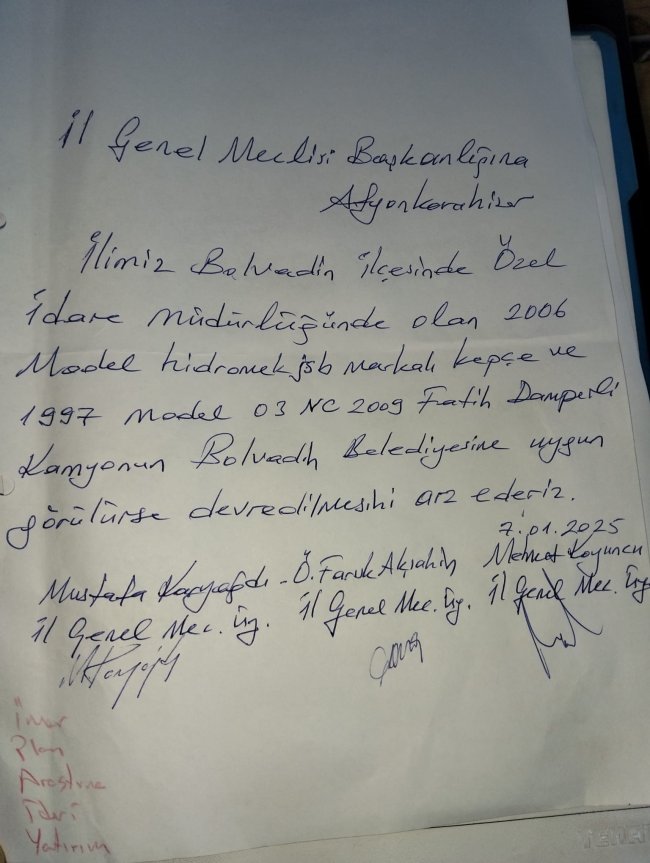 İl Genel Meclisi Başkanlığına
Afyonkarahisar
İlimiz Bolvadin ilçesinde Özel
İdare müdürlüğünde olan 2006
Model hidromek jsb markalı kepçe ve
1997 model 03 NC 2009 Fatih Damperli
Kamyonun Bolvadin Belediyesine uygun
görülürse devredilmesini arz ederiz.
7.01.2025
Mustafa Karyağdı - Ö. Faruk Akşahin Mehmet Koyuncu
İl Genel Mec. Üy. İl Genel Mec. Üy. İl Genel Mec. Üy.
İmar
Plan
Araştırma
İdari
Yatırım